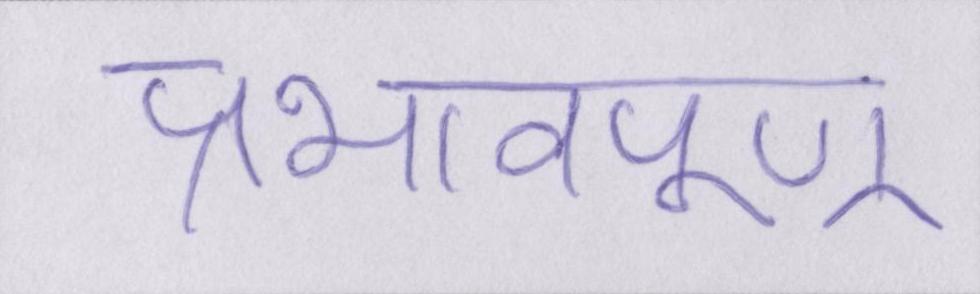 प्रभावपूण्